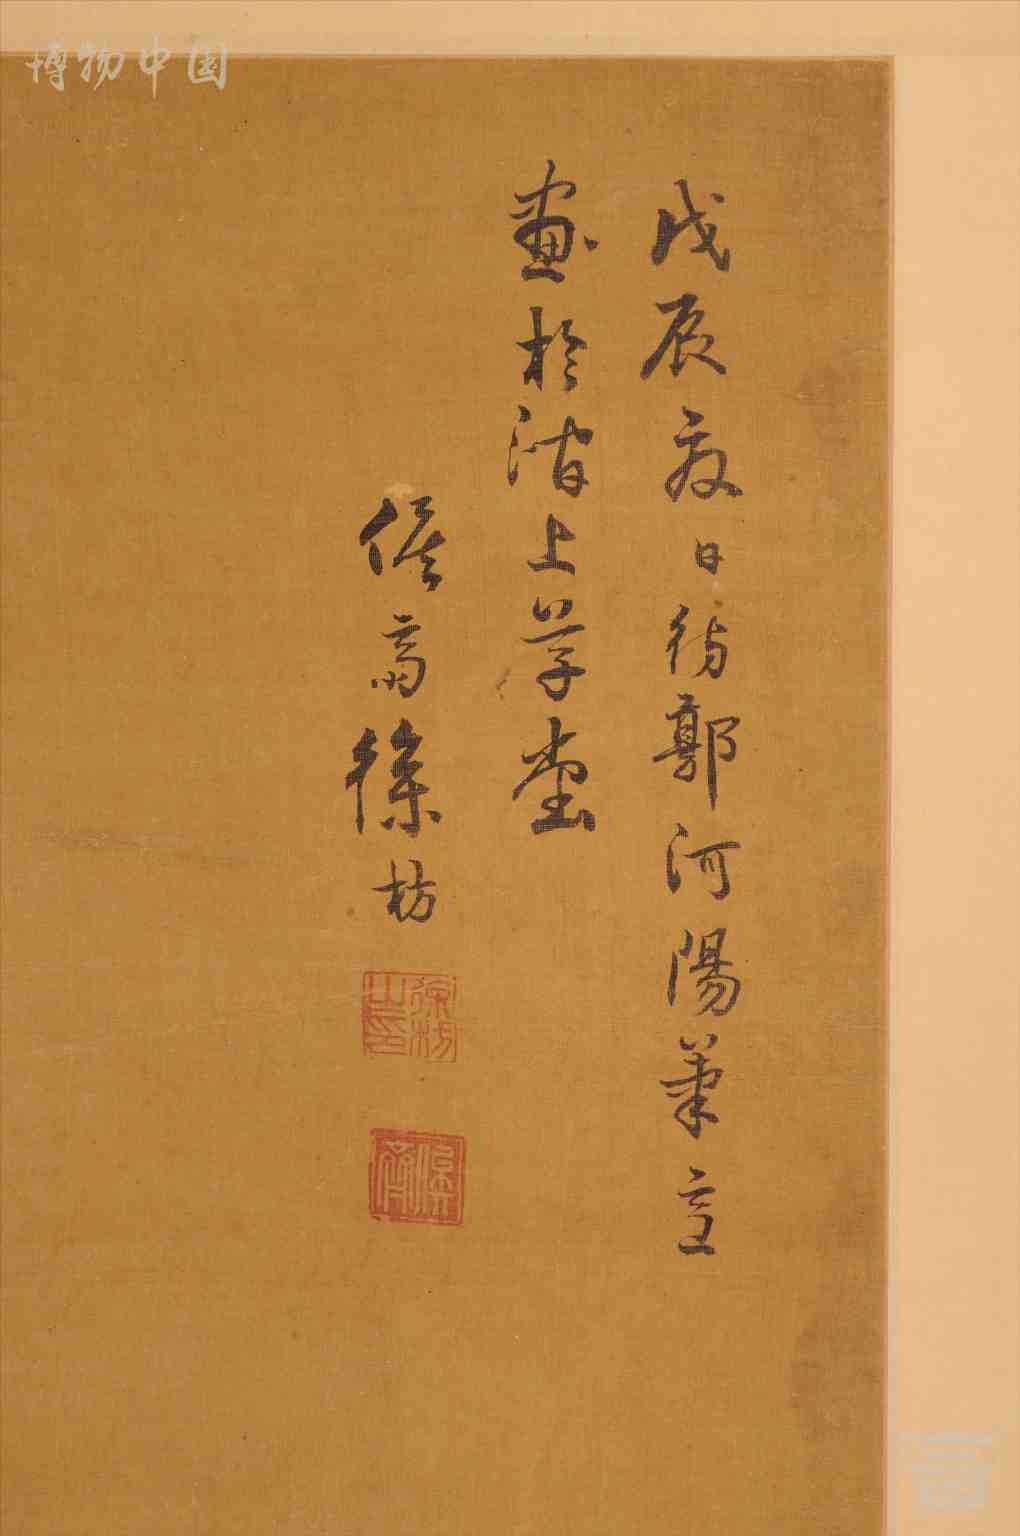 戊辰夜日仿郭河陽筆意
畫於澗上草堂
俟齋徐枋
徐枋之印
俟齋
博物中国